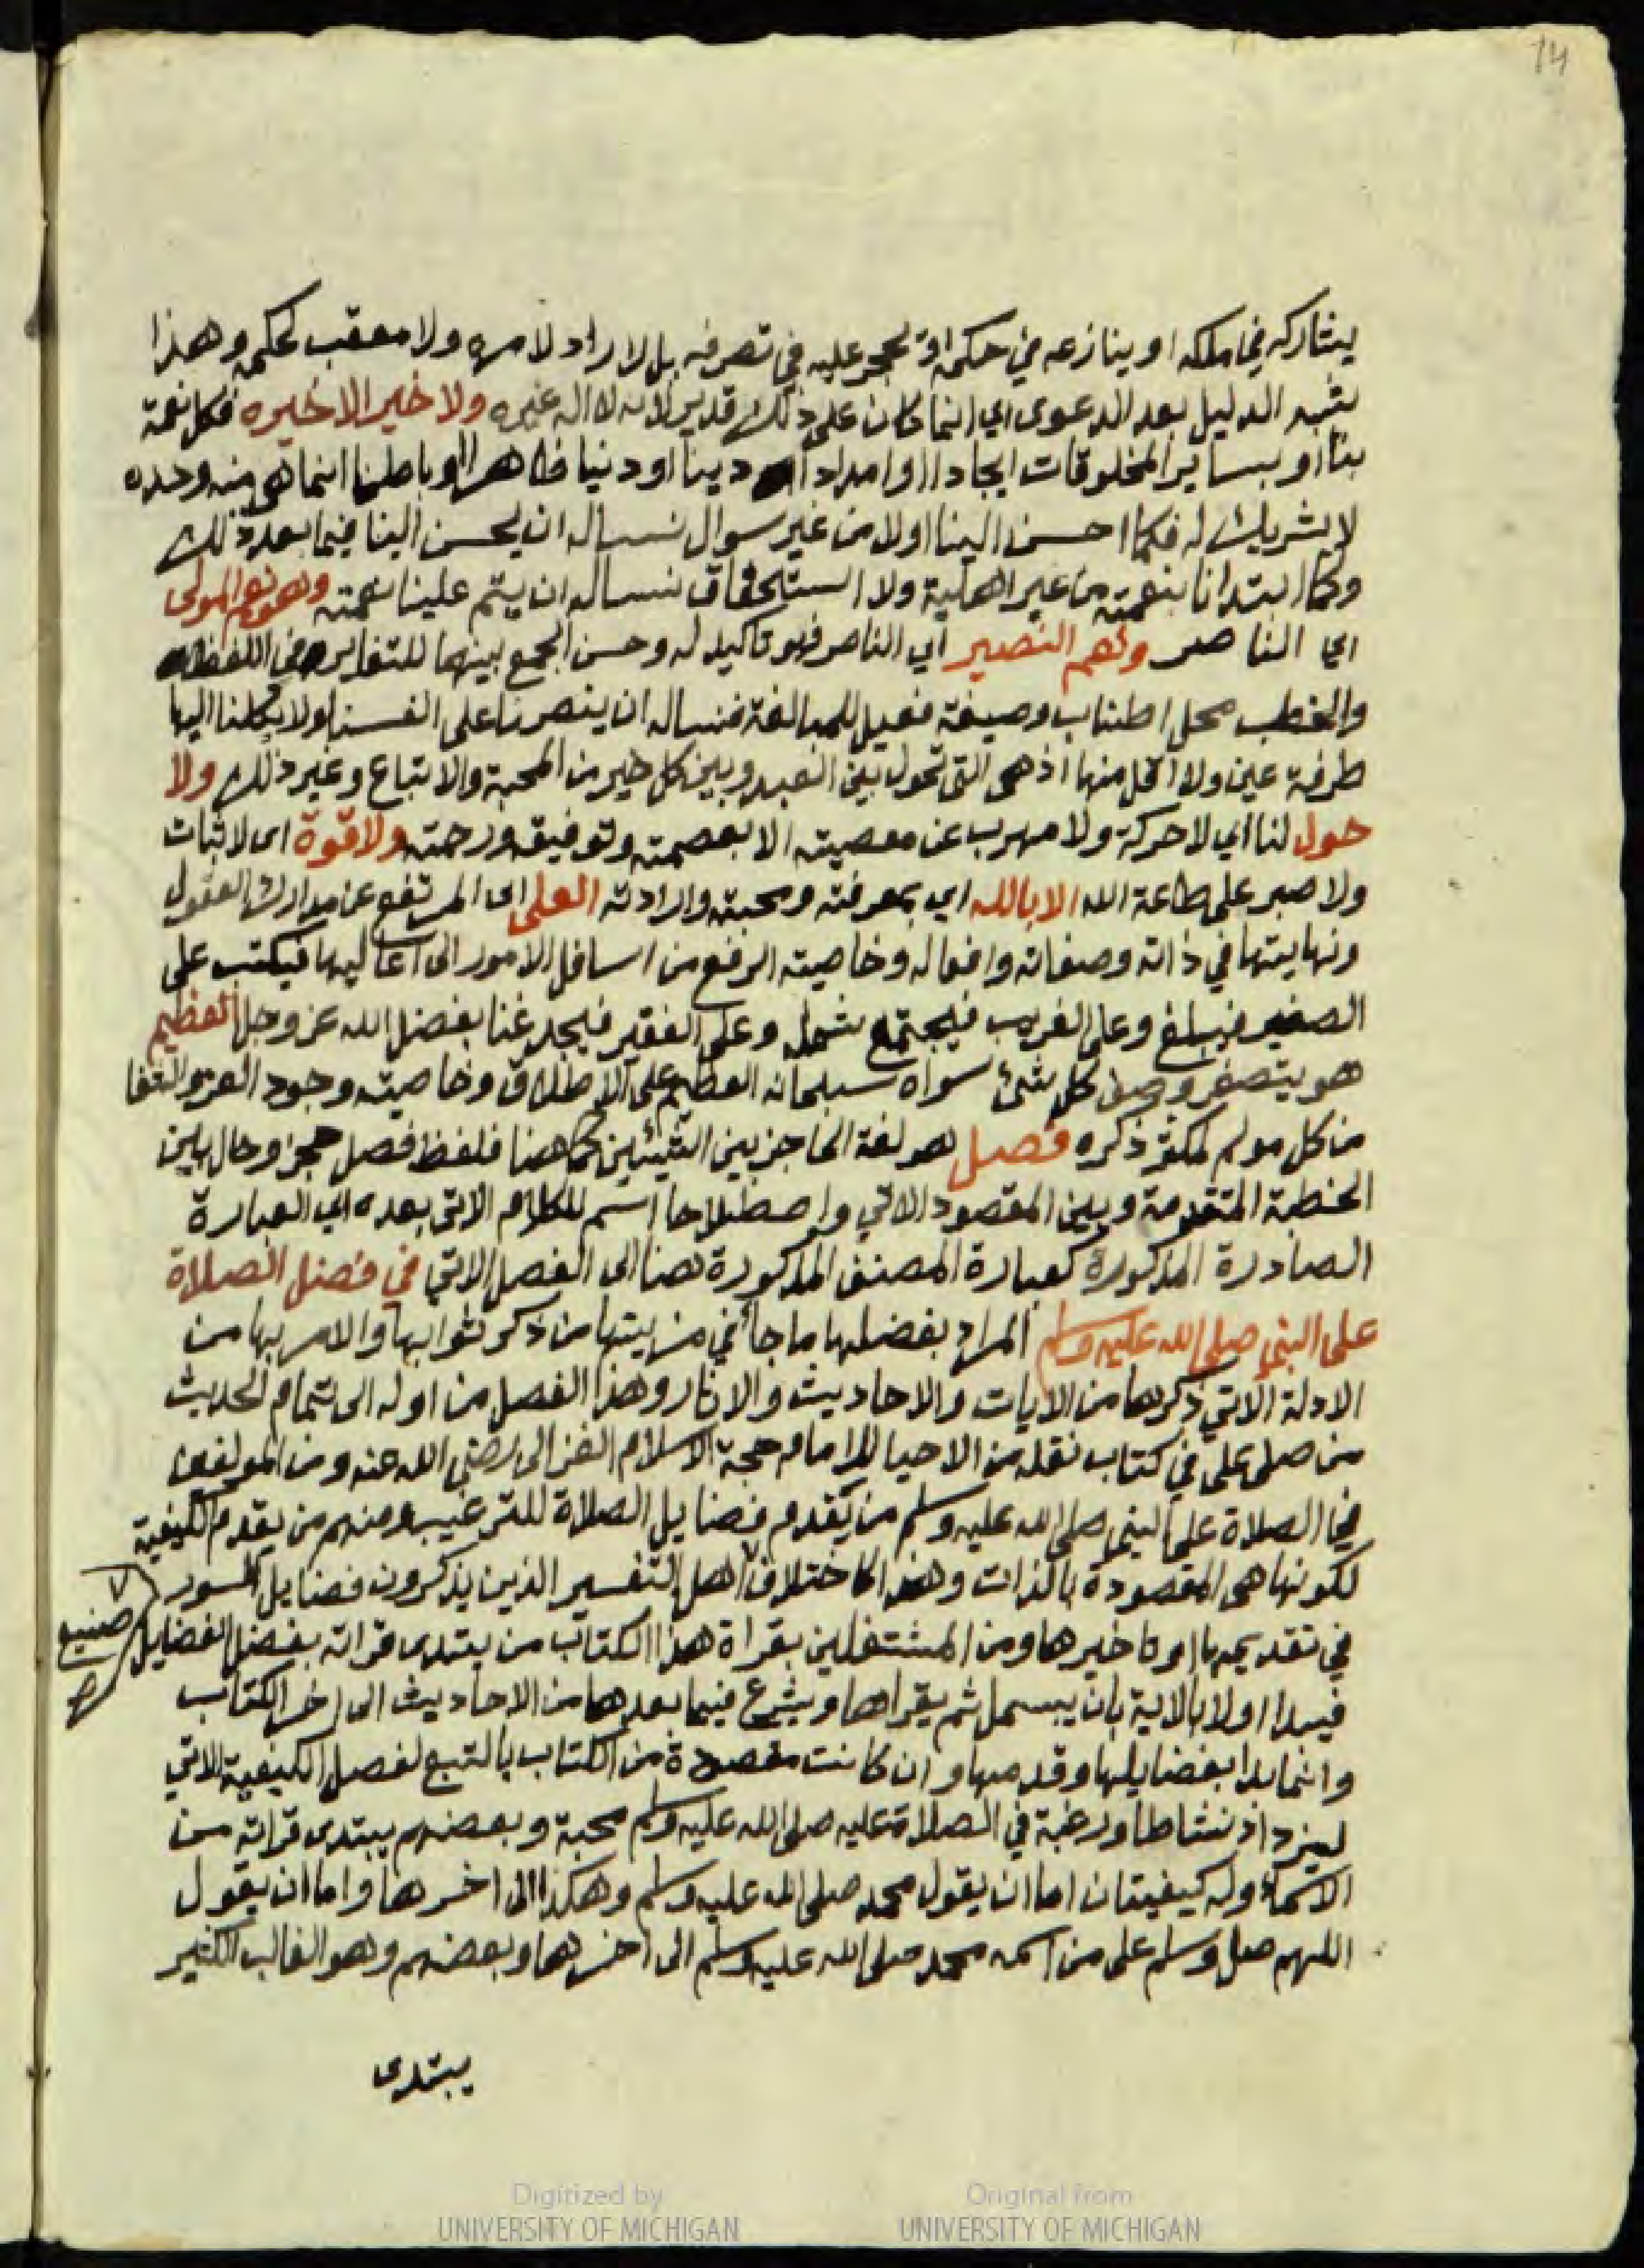 14
يشاركه في ملكه او ينازعه في حكمه او يحجر عليه في تصرفه بل لا راد لامره ولا معقب لحكمه وهذا
يشبه الدليل بعد الدعوى اي انما كان على ذلك قديرا لانه لا اله غيره ولا خير الا خيره فكل نعمة
بنا او بساير المخلوقات ايجادا او امدادا دينا او دنيا ظاهرا او باطنا انما هي منه وحده
لا شريك له فكما احسن الينا اولا من غير سوال نساله ان يحسن الينا فيما بعد ذلك
وكما ابتدانا بنعمته من غير اهلية ولا استحقاق نساله ان يتم علينا نعمته وهو نعم المولى
اي الناصر ونعم النصير اي الناصر فهو تاكيد له وحسن الجمع بينهما للتغاير في اللفظ
والخطب محل اطناب وصيغة فعيل للمبالغة فنساله ان ينصرنا على انفسنا ولا يكلنا اليها
طرفة عين ولا اقل منها اذ هي التي تحول بين العبد وبين كل خير من المحبة والاتباع وغير ذلك ولا
حول لنا اي لا حركة ولا مهرب عن معصيته الا بعصمته وتوفيقه ورحمته ولا قوة اى لا ثبات
ولا صبر على طاعة الله الا بالله اي بمعرفته ومحبته وارادته العلى اى المرتفع عن مدارك العقول
ونهايتها في ذاته وصفاته وافعاله وخاصيته الرفع من اسافل الامور الى اعاليها فيكتب على
الصغير فيبلغ وعلى الغريب فيجتمع شمله وعلى الفقير فيجد غنا بفضل الله عز وجل العظيم
هو يتصغر وصف كل شئ سواه سبحانه العظيم على الاطلاق وخاصيته وجود العز والشفا
من كل مولم لمكثر ذكره فصل هو لغة الحاجز بين الشيئين كما هنا فلفظ فصل حجز وحال بين
الخطبة المتقدمة وبين المقصود الاتي واصطلاحا اسم للكلام الاتى بعده اي العبارة
الصادرة المذكورة كعبارة المصنف المذكورة هنا الى الفصل الاتي في فضل الصلاة
على النبي صلى الله عليه وسلم المراد بفضلها ما جا في مزيتها من ذكر ثوابها والامر بها من
الادلة الاتي ذكرها من الايات والاحاديث والاثار وهذا الفصل من اوله الى تمام الحديث
من صلى علي في كتاب نقله من الاحيا للامام حجة الاسلام الغزالى رضى الله عنه ومن المولفين
في الصلاة على النبي صلى الله عليه وسلم من يقدم فضايل الصلاة للترغيب ومنهم من يقدم الكيفية
لكونها هى المقصودة بالذات وهذا كاختلاف اهل التفسير الذين يذكرون فضايل السور
في تقديمها او تاخيرها ومن المشتغلين بقراة هذا الكتاب من يبتدى قراته بفصل الفضايل
صنيع
صح
فيبدا اولا بالاية بان يبسمل ثم يقراها ويشرع فيما بعدها من الاحاديث الى اخر الكتاب
وانما بدا بفضايلها وقدمها وان كانت مقصودة من الكتاب بالتبع لفصل الكيفية الاتي
ليزداد نشاطا ورغبة في الصلاة عليه صلى الله عليه وسلم محبة وبعضهم يبتدى قراته من
الاسماء وله كيفيتان اما ان يقول محمد صلى الله عليه وسلم وهكذا الى اخرها واما ان يقول
اللهم صل وسلم على من اسمه محمد صلى الله عليه وسلم الى اخرها وبعضهم وهو الغالب الكثير
يبتدى
Digitized by
UNIVERSITY OF MICHIGAN
Original from
UNIVERSITY OF MICHIGAN